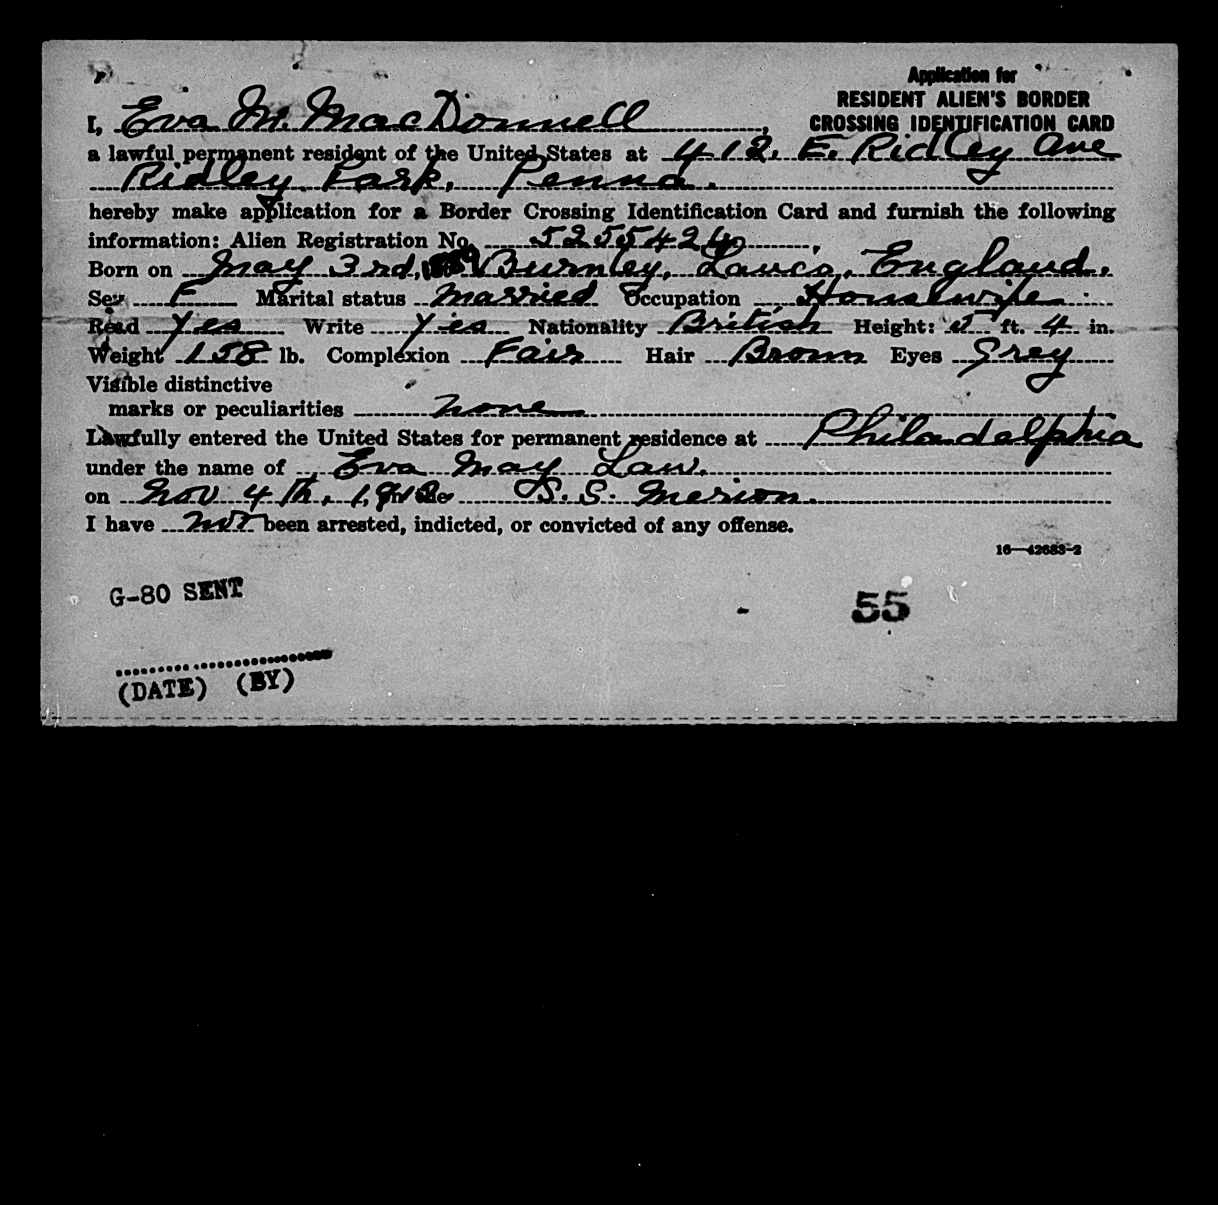 Application for
RESIDENT ALIEN'S BORDER
CROSSING IDENTIFICATION CARD
I, Eva M. MacDonnell,
a lawful permanent resident of the United States at 412. E. Ridley Ave
Ridley Park, Penna.
hereby make application for a Border Crossing Identification Card and furnish the following
information: Alien Registration No.
Born on May 3rd, Burnley, Lancs, England.
Sex F Marital status Married Occupation Housewife
Read Yes Write Yes Nationality British Height: 5 ft. 4 in.
Weight 158 lb. Complexion Fair Hair Brown Eyes Grey
Visible distinctive
marks or peculiarities none
Lawfully entered the United States for permanent residence at Philadelphia
under the name of Eva May Law.
on Nov 4th, 1912 S.S. Merion.
I have not been arrested, indicted, or convicted of any offense.
16—42683-2
G-80 SENT
55
(DATE) (BY)